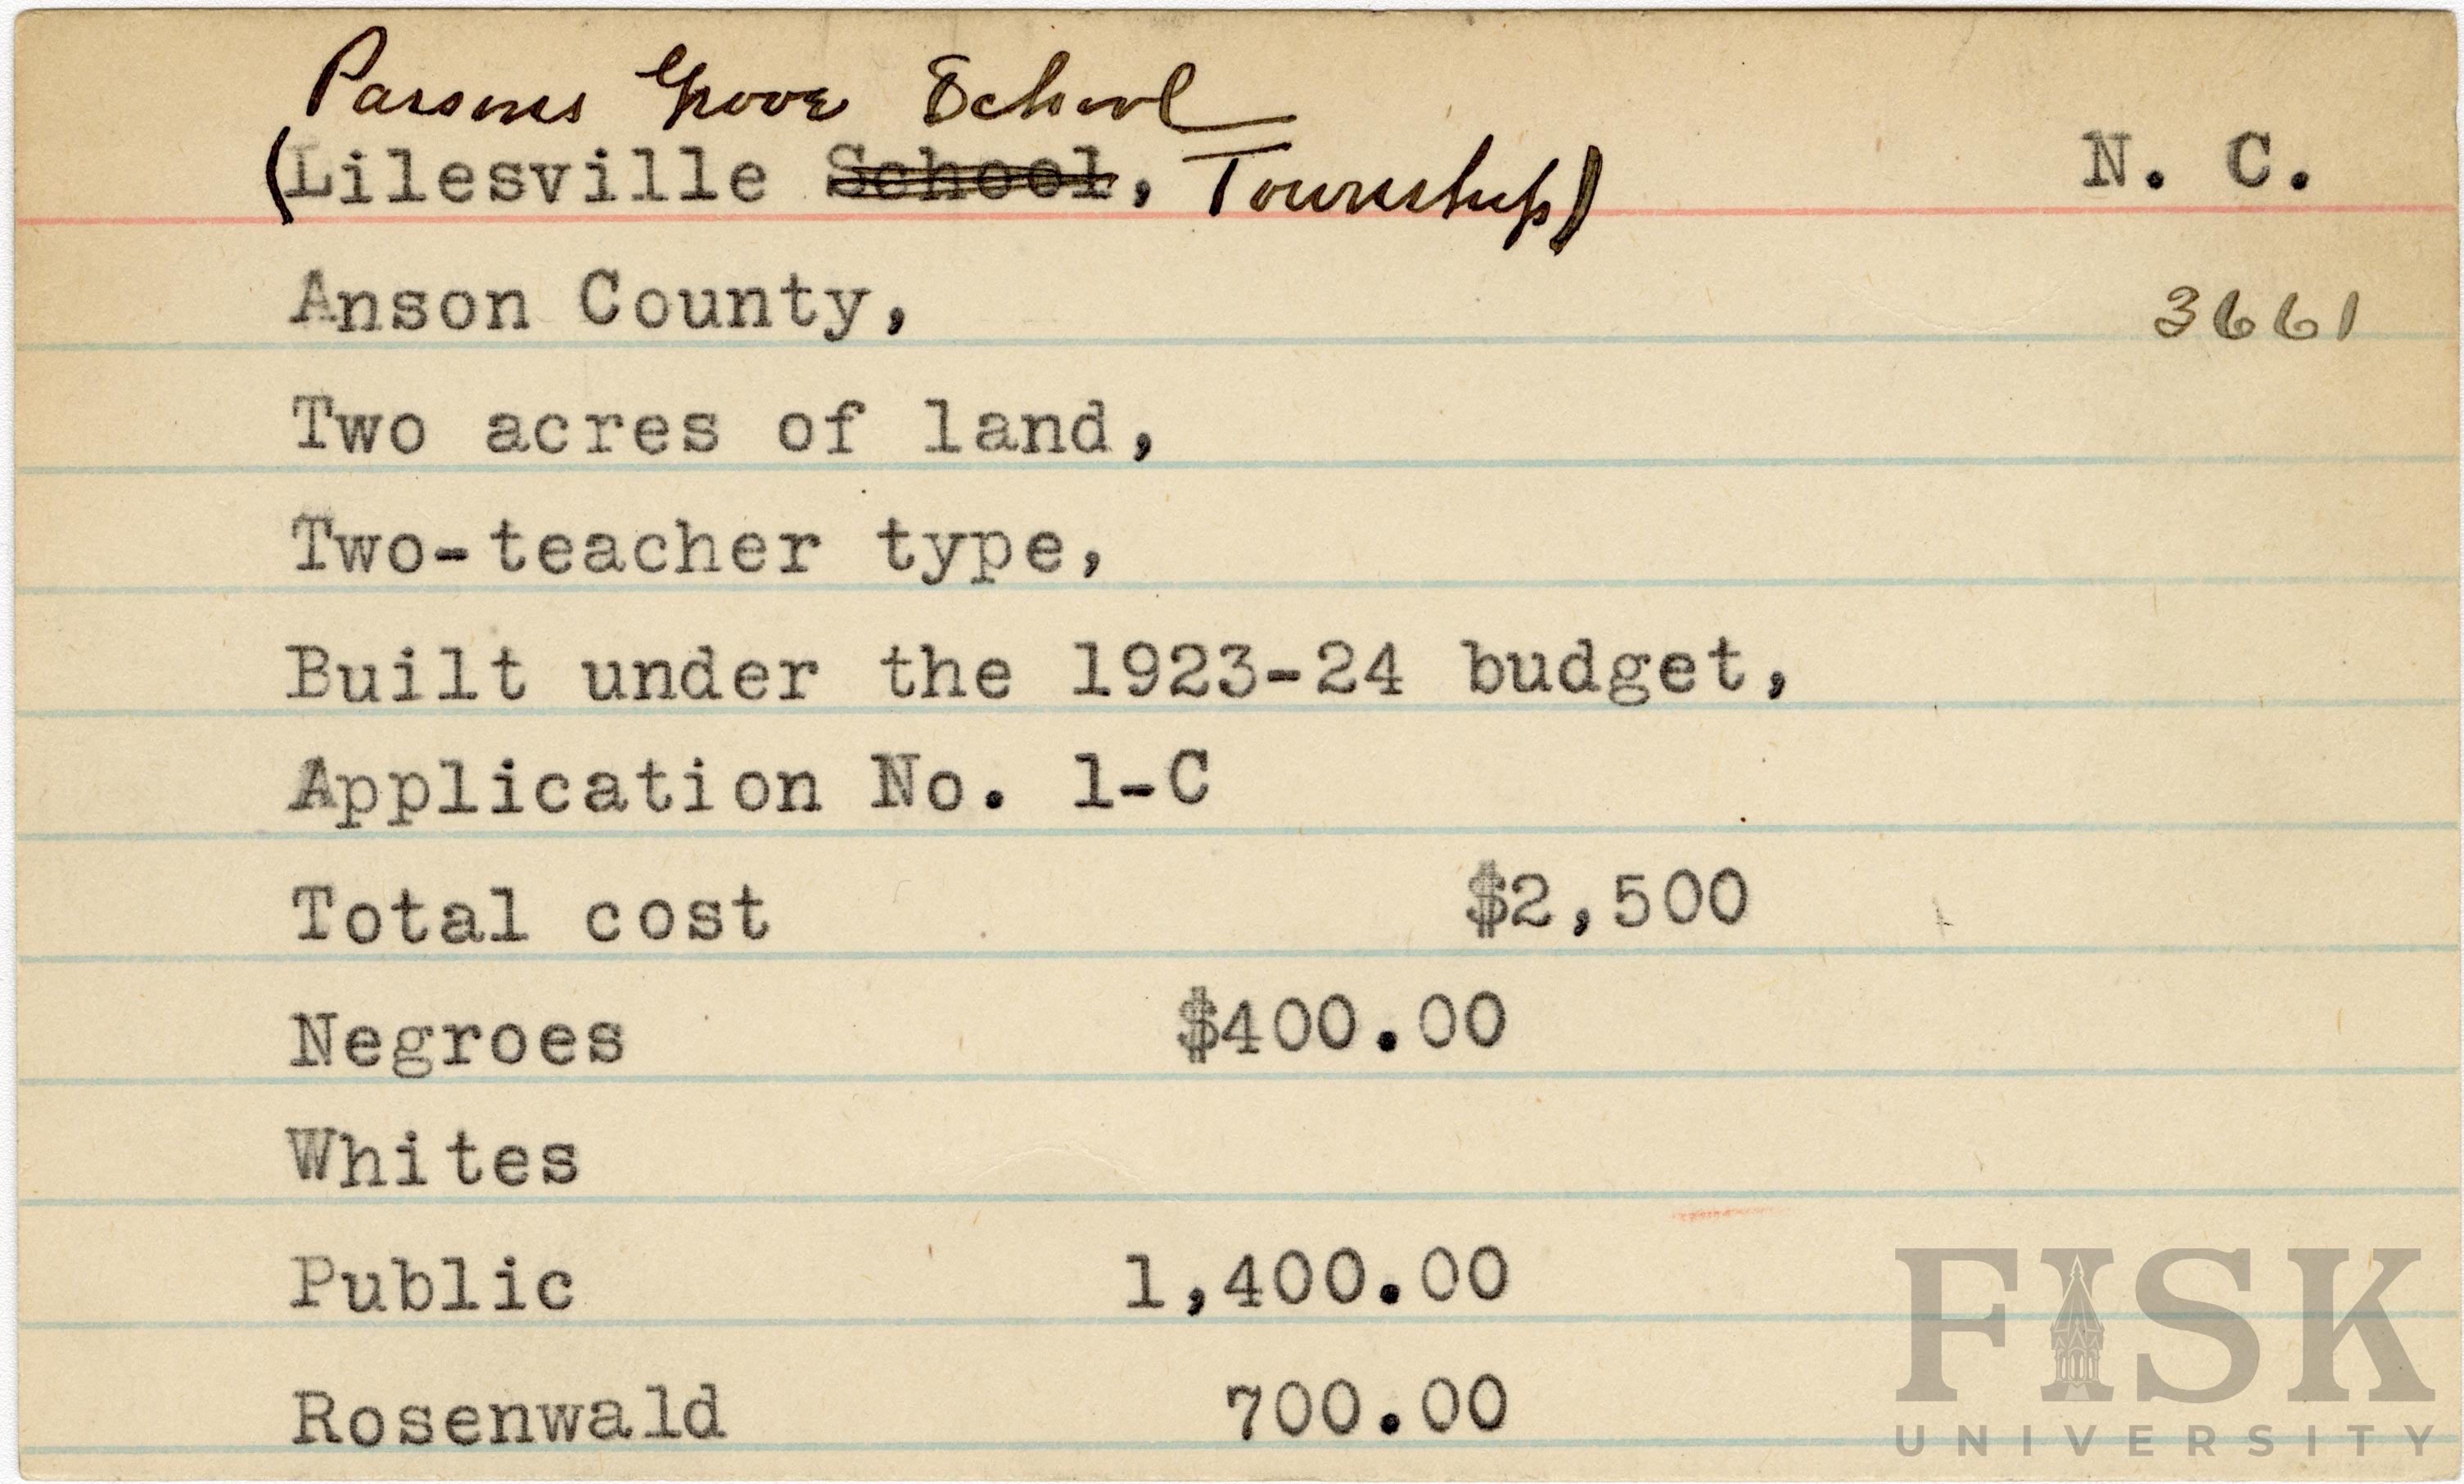 Parsons Grove School
(Lilesville School, Township) N. C.
Anson County, 3661
Two acres of land,
Two-teacher type,
Built under the 1923-24 budget,
Application No. 1-C
Total cost $2,500
Negroes $400.00
Whites
Public 1,400.00
Rosenwald 700.00
FISK
UNIVERSITY